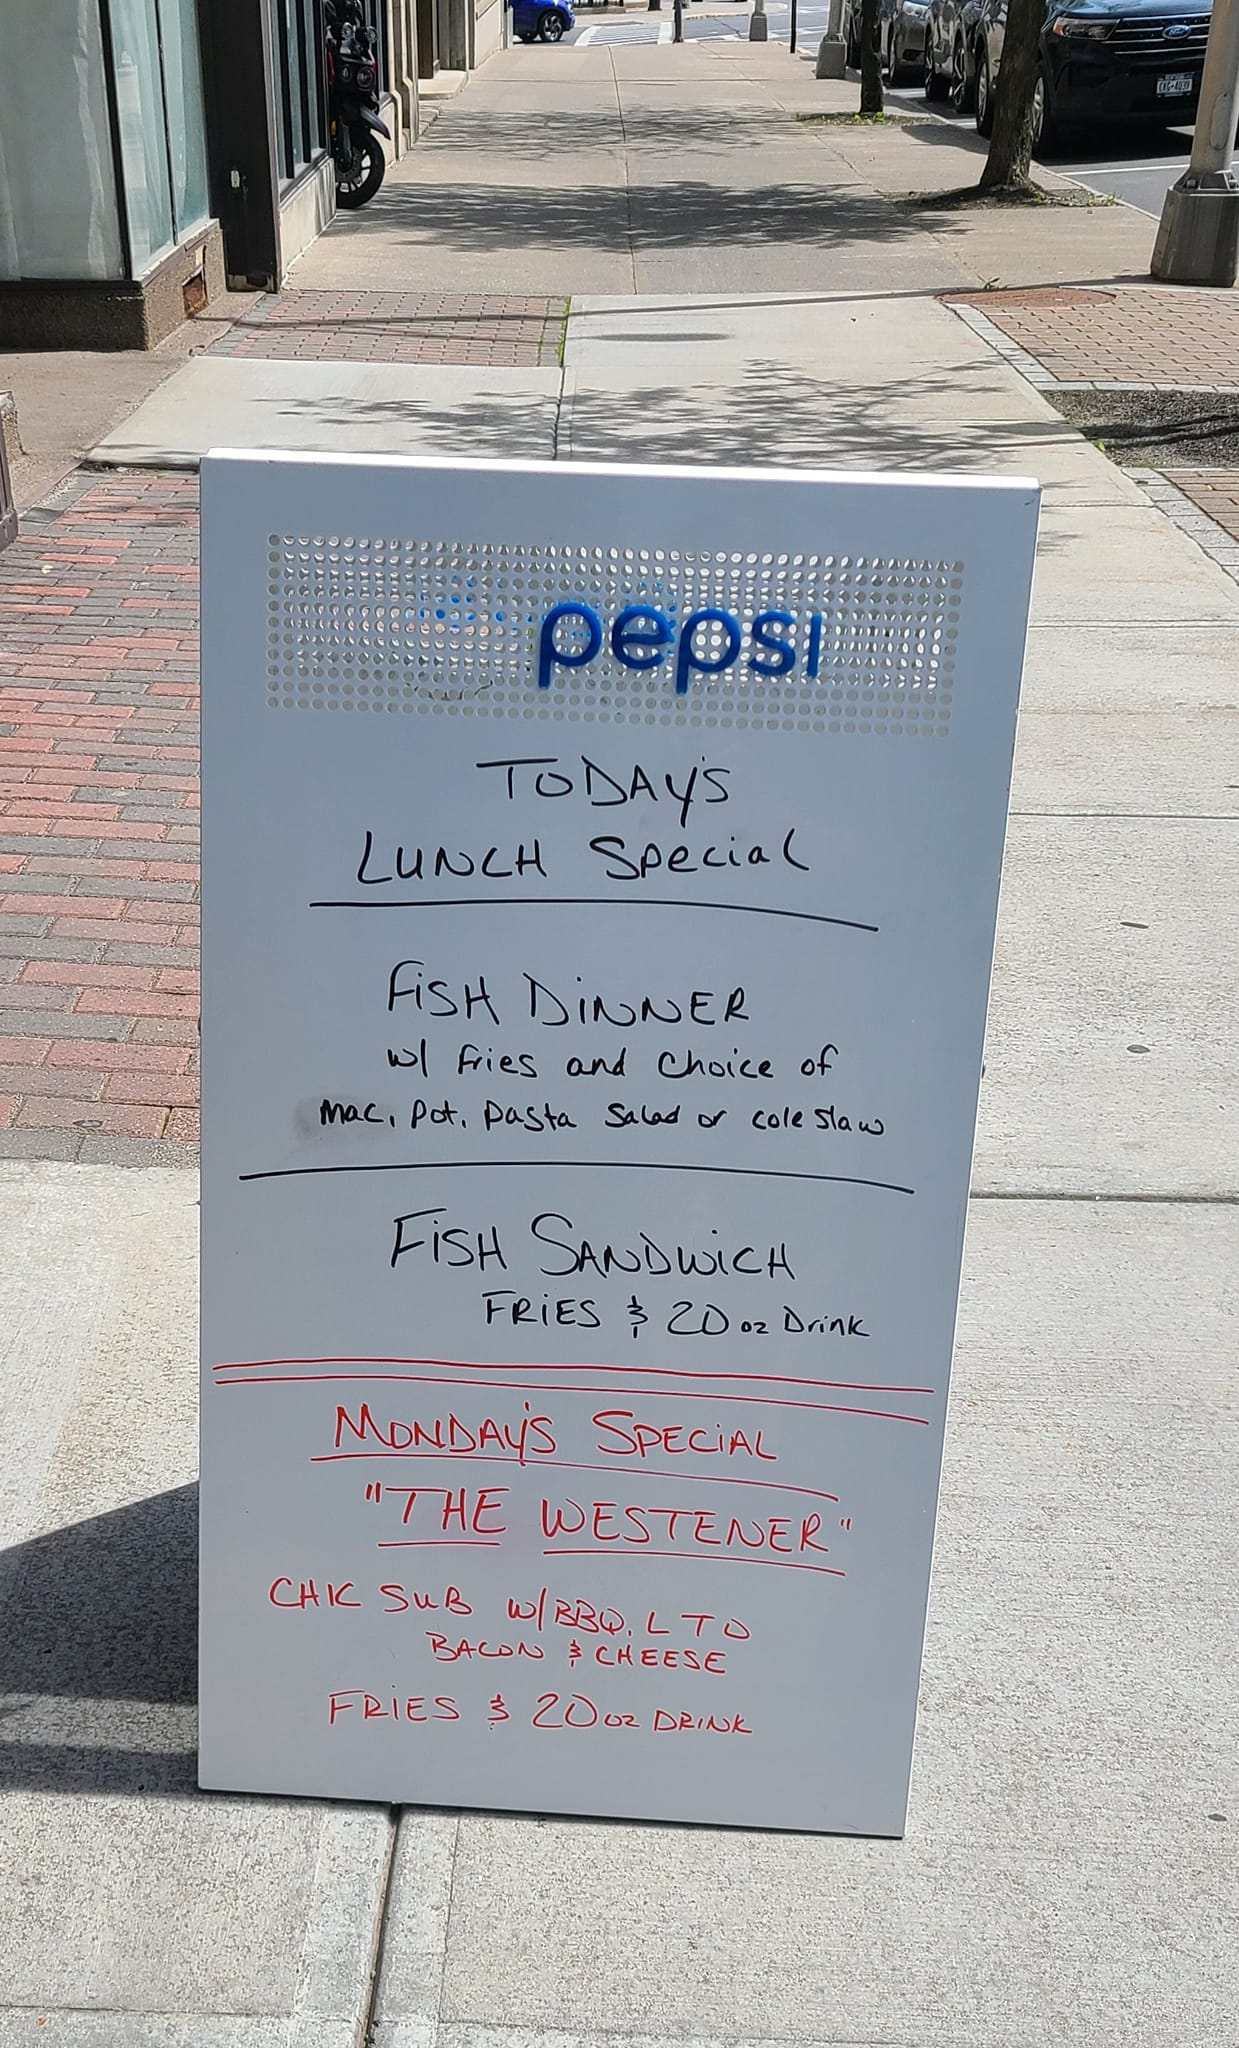 Ford
pepsi
TODAY'S
LUNCH Special
FISH DINNER
w/ fries and choice of
Mac, Pot, Pasta Salad or coleslaw
FISH SANDWICH
FRIES & 20oz Drink
MONDAY'S SPECIAL
"THE WESTENER"
CHIC SUB W/BBQ, LTO
BACON & CHEESE
FRIES & 20oz DRINK